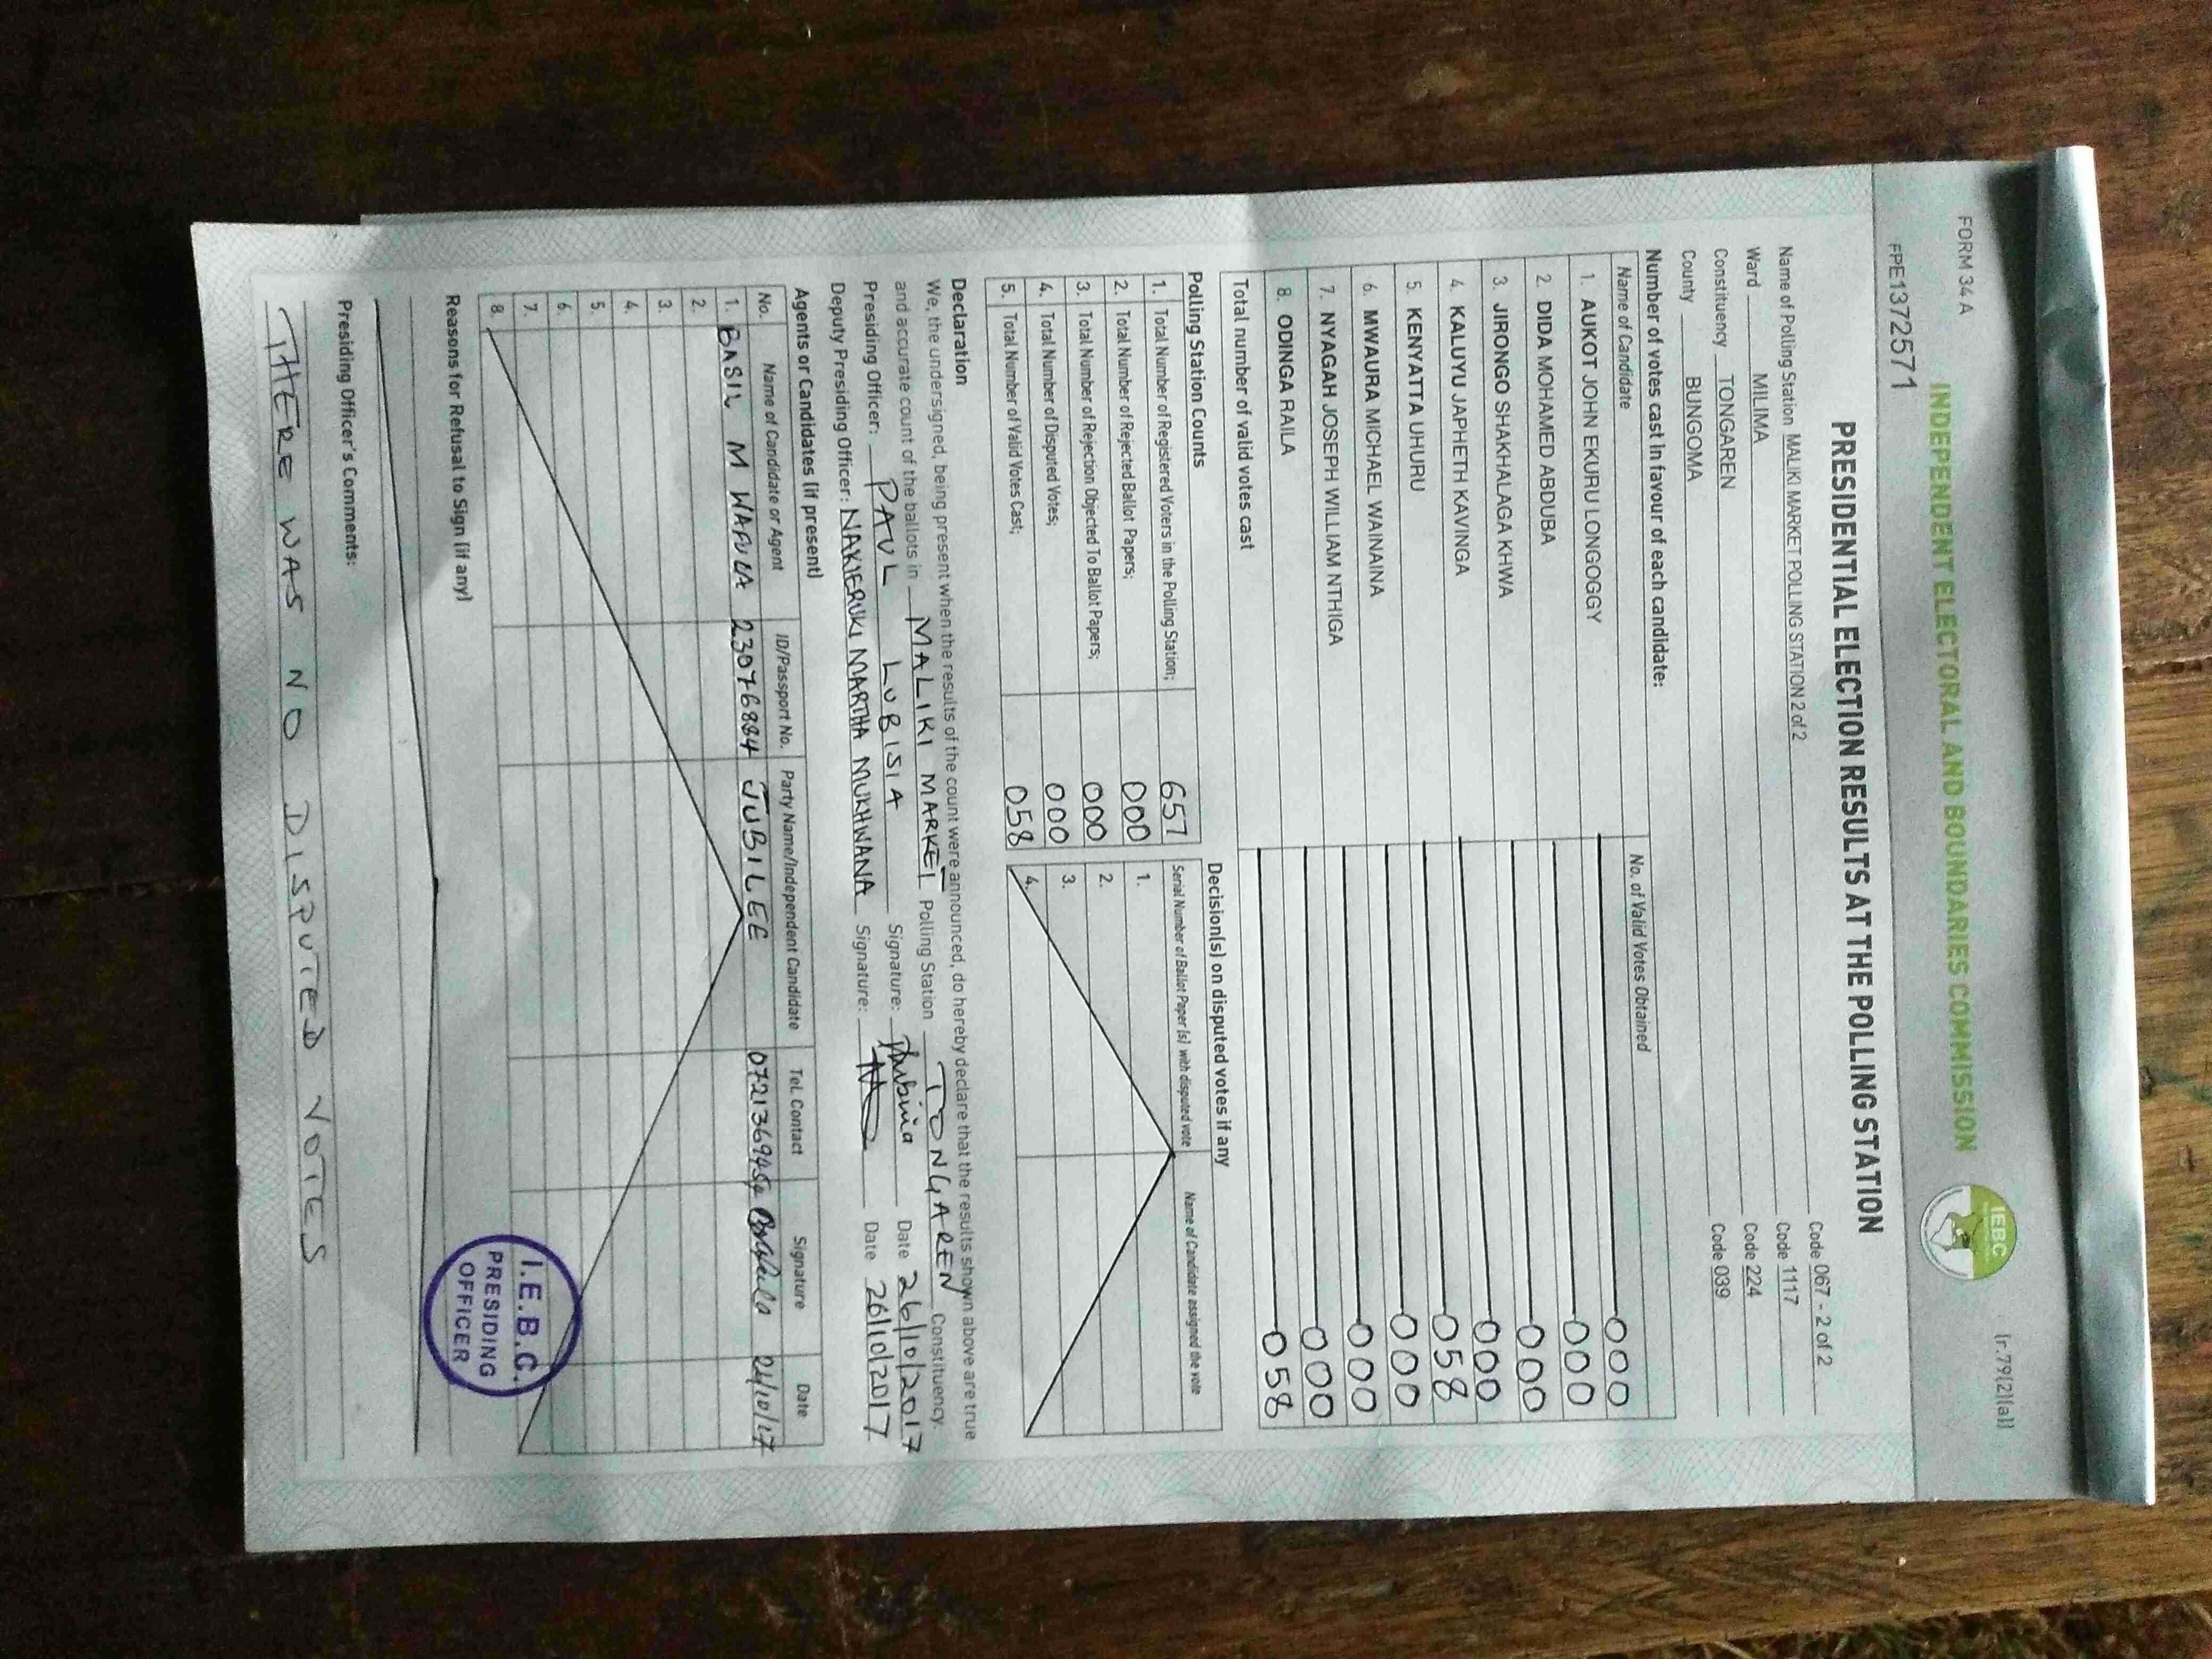 FORM 34 A
(r.79(2)(a))
INDEPENDENT ELECTORAL AND BOUNDARIES COMMISSION
IEBC
FPE1372571
PRESIDENTIAL ELECTION RESULTS AT THE POLLING STATION
Name of Polling Station MALIKI MARKET POLLING STATION 2 of 2 Code 067 - 2 of 2
Ward MILIMA Code 1117
Constituency TONGAREN Code 224
County BUNGOMA Code 039
Number of votes cast in favour of each candidate:
Name of Candidate No. of Valid Votes Obtained
1. AUKOT JOHN EKURU LONGOGGY 000
2. DIDA MOHAMED ABDUBA 000
3. JIRONGO SHAKHALAGA KHWA 000
4. KALUYU JAPHETH KAVINGA 000
5. KENYATTA UHURU 058
6. MWAURA MICHAEL WAINAINA 000
7. NYAGAH JOSEPH WILLIAM NTHIGA 000
8. ODINGA RAILA 000
Total number of valid votes cast 058
Polling Station Counts
1. Total Number of Registered Voters in the Polling Station; 657
2. Total Number of Rejected Ballot Papers; 000
3. Total Number of Rejection Objected To Ballot Papers; 000
4. Total Number of Disputed Votes; 000
5. Total Number of Valid Votes Cast; 058
Decision(s) on disputed votes if any
Serial Number of Ballot Paper (s) with disputed vote Name of Candidate assigned the vote
1.
2.
3.
4.
Declaration
We, the undersigned, being present when the results of the count were announced, do hereby declare that the results shown above are true
and accurate count of the ballots in MALIKI MARKET Polling Station TONGAREN Constituency.
Presiding Officer: PAUL LUBISIA Signature: Date 26/10/2017
Deputy Presiding Officer: NAKIERUKI MARTHA MUKHWANA Signature: Date 26/10/2017
Agents or Candidates (if present)
No. Name of Candidate or Agent ID/Passport No. Party Name/Independent Candidate Tel. Contact Signature Date
1. BASIL M WAFULA 23076884 JUBILEE
2.
3.
4.
5.
6.
7.
8.
I.E.B.C.
PRESIDING
OFFICER
Reasons for Refusal to Sign (if any)
Presiding Officer's Comments:
THERE WAS NO DISPUTED VOTES